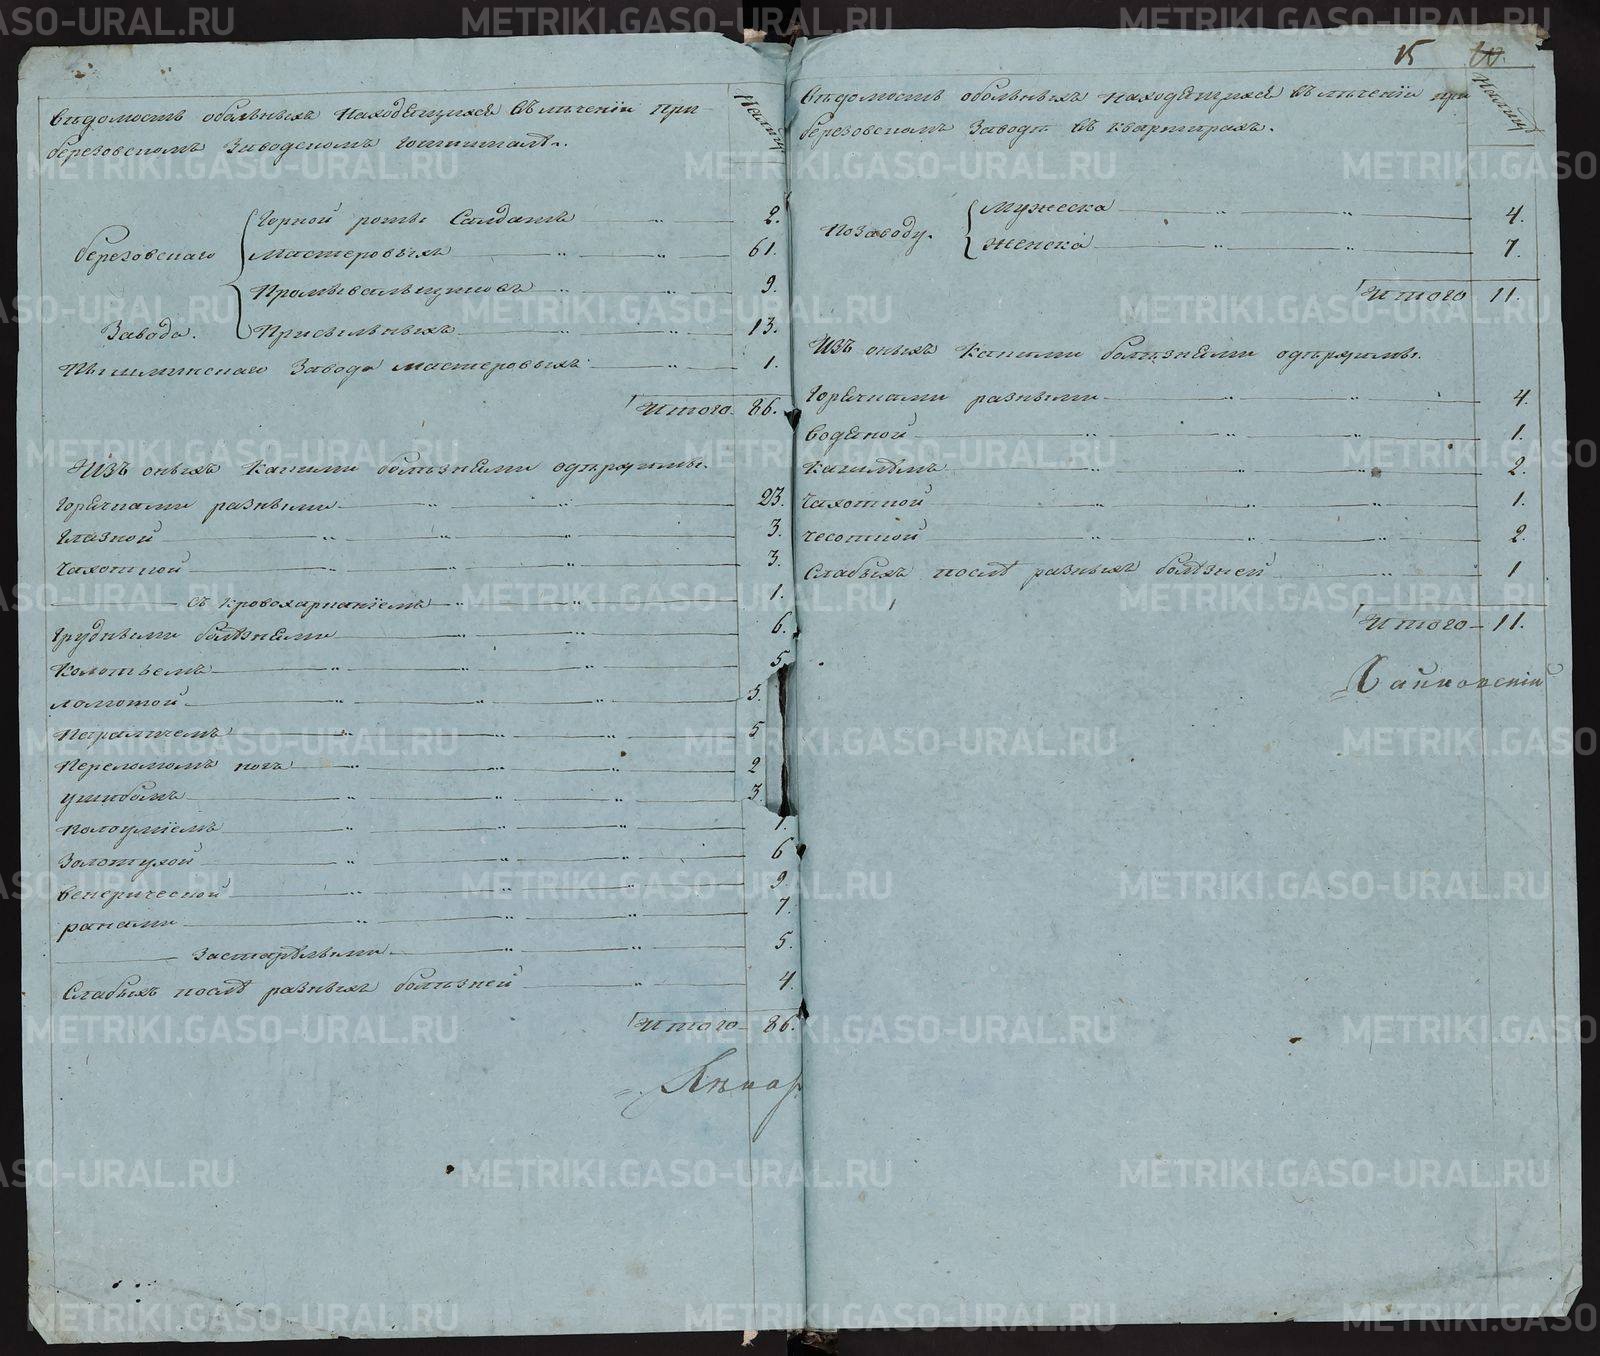 Ведомость обольныхъ находящихся въ лѣченіи при
Березовскомъ Заводскомъ Гошпиталѣ.
Налицо
Березовскаго
Завода.
Горной роты Салдатъ 2.
Мастеровыхъ 61.
Промывальщиковъ 9.
Присыльныхъ 13.
Пышминскаго Завода мастеровыхъ 1.
Итого 86.
Изъ оныхъ какими болѣзнями одѣржимы.
Горячками разными 23.
Глазной 3.
Чахотной 3.
съ кровохарканіемъ 1.
Грудными болѣзнями 6.
Колотьемъ 5
ломотой 3.
Параличемъ 5
Переломомъ ногъ 2
ушибомъ 3.
Малоумiемъ 1.
Золотухой 6
венерической 9.
ранами 7.
Застарѣлыми 5.
Слабыхъ послѣ разныхъ болѣзней 4.
Итого 86.
Лѣкар
15
Ведомость обольныхъ находящихся въ лѣченіи при
Березовскомъ Заводѣ въ квартирахъ.
Налицо
Позаводу.
Мужеска 4.
Женска 7.
Итого 11.
Изъ оныхъ какими болѣзнями одѣржимы.
Горячками разными 4.
водяной 1.
кашлемъ 2.
Чахотной 1.
чесотной 2.
Слабыхъ послѣ разныхъ болѣзней 1
Итого 11.
METRIKI.GASO-URAL.RU